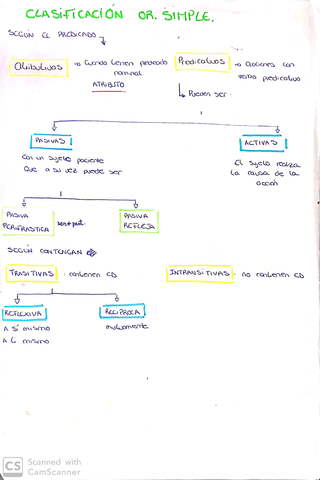 CLASIFICACIÓN OR. SIMPLE.
SEGÚN EL PREDICADO
Atributivos → Cuando tienen predicado nominal.
ATRIBUTO
Predicativos → Oraciones con verbo predicativo
Pueden ser
PASIVAS
Con un sujeto paciente
Que a su vez puede ser
ACTIVAS
El sujeto realiza
la causa de la
acción
PASIVA
PERIFRÁSTICA
ser + part.
PASIVA
REFLEJA
SEGÚN CONTENGAN
TRASITIVAS - contienen CD
INTRANSITIVAS - no contienen CD
REFLEXIVA
A SÍ mismo
A mismo
RECÍPROCA
mutuamente
CS Scanned with
CamScanner